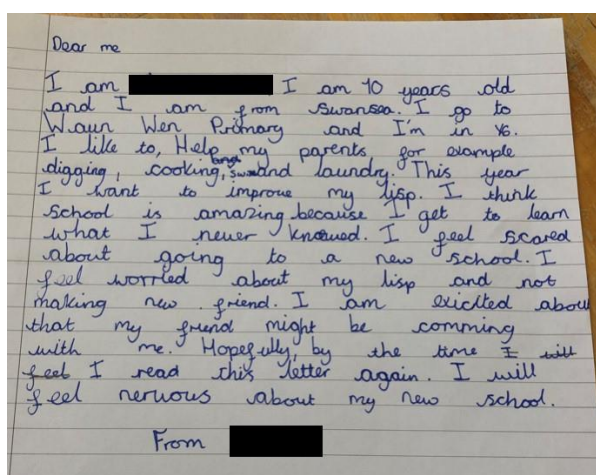 Dear me
I am I am 10 years old
and I am from swansea. I go to
Waun Wen Primary and I'm in Y6.
I like to, Help my parents for example
digging, cooking, and laundry. This year
I want to improve my lisp. I think
school is amazing because I get to learn
what I never knowed. I feel scared
about going to a new school. I
feel worried about my lisp and not
making new friend. I am exicted abou
that my friend might be comming
with me. Hopefully, by the time I will
feel I read this letter again. I will
feel nervous about my new school.
From